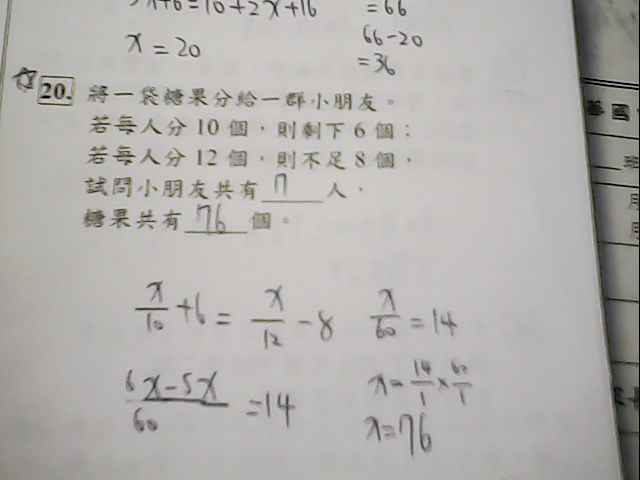 x+6=10+2x+16
=66
x=20
66-20
=36
20. 將一袋糖果分給一群小朋友。
若每人分 10 個,則剩下 6 個;
若每人分 12 個,則不足 8 個,
試問小朋友共有 7 人,
糖果共有 76 個。
x/10 +6 = x/12 -8
x/60 =14
6x-5x/60 =14
x= 14/1 × 60/1
x=76
國
班
月